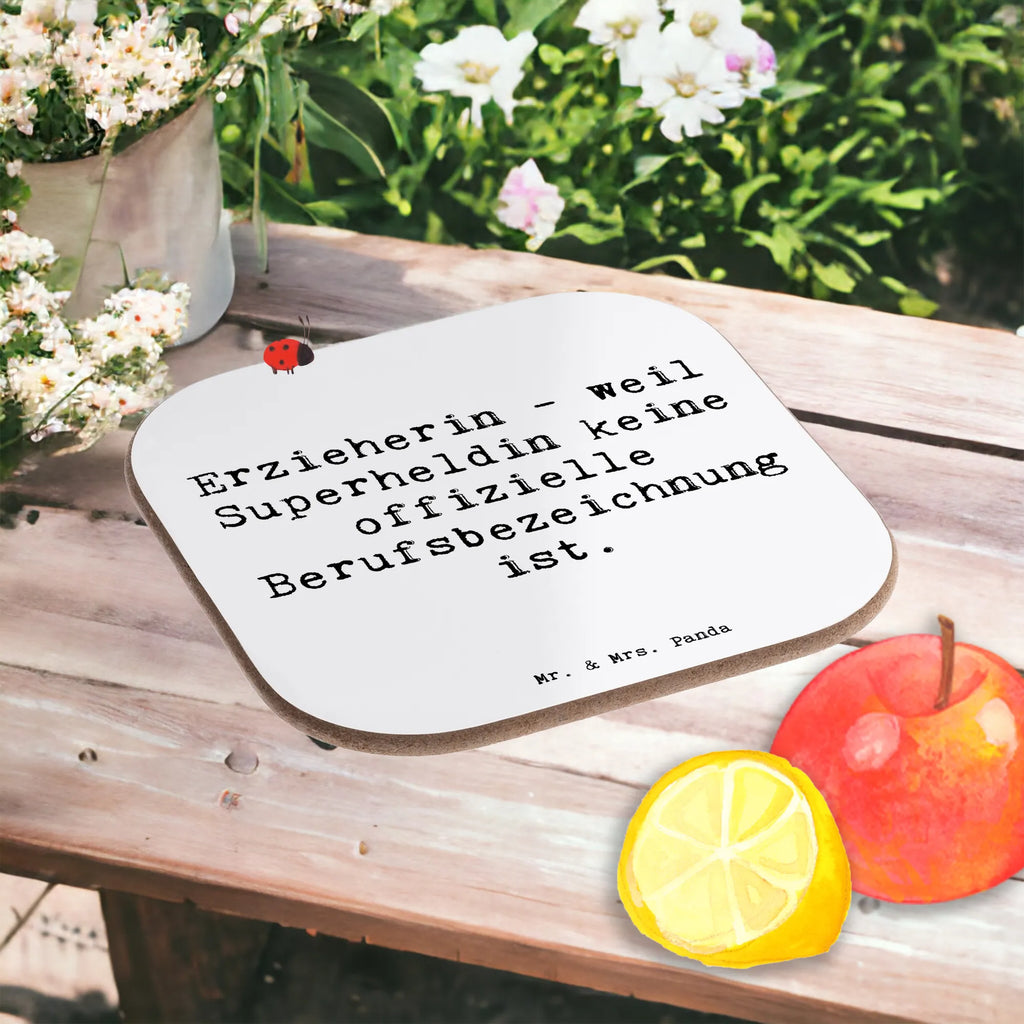 Erzieherin - weil
Superheldin keine
offizielle
Berufsbezeichnung
ist.
Mr. & Mrs. Panda